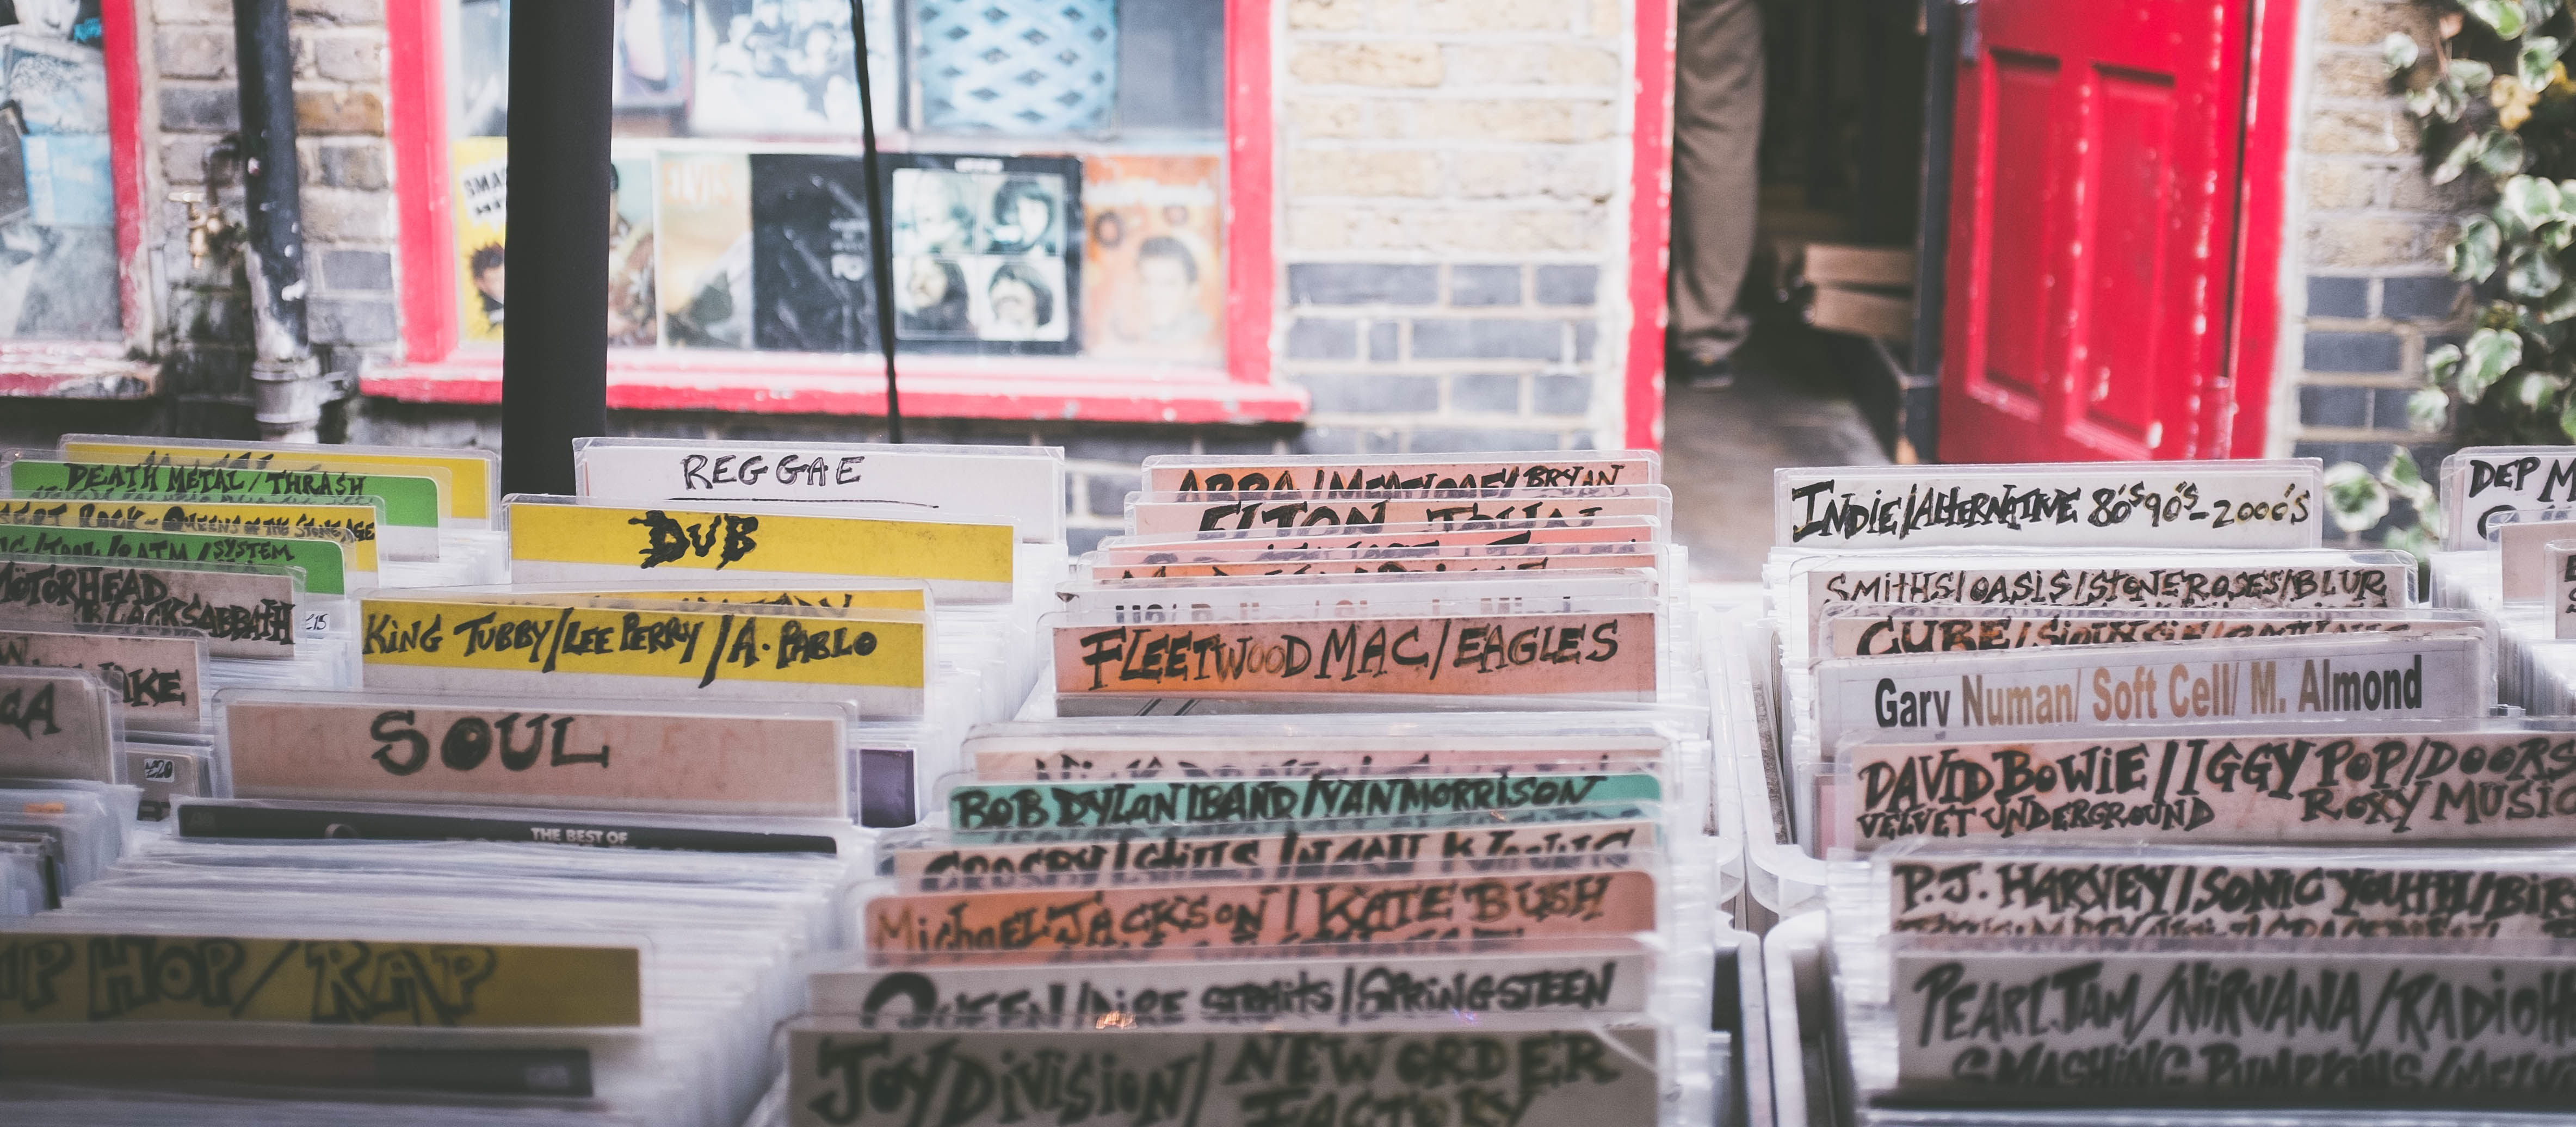 DEATH METAL/THRASH
DESERT ROCK-QUEENS OF THE STONE AGE
/TOOL/RATM/SYSTEM
MOTORHEAD
BLACK SABBATH
£15
£20
REGGAE
DUB
KING TUBBY/LEE PERRY/A. PABLO
SOUL
THE BEST OF
HIP HOP/RAP
ABBA/MEATLOAF/BRYAN
ELTON JOHN
FLEETWOOD MAC/EAGLES
BOB DYLAN/BAND/VAN MORRISON
CROSBY/STILLS/NASH
MichaEL JACKSON/KATE BUSH
QUEEN/DIRE STRAITS/SPRINGSTEEN
JOY DiViSiON/NEW ORDER
FACTORY
INDIE/ALTERNATIVE 80'S 90'S-2000'S
SMiTHS/OASIS/STONE ROSES/BLUR
CURE/SIOUXSIE
Gary Numan/ Soft Cell/ M. Almond
DAVID BOWIE//IGGY POP/DOORS
VELVET UNDERGROUND ROXY MUSIC
P.J. HARVEY/SONIC YOUTH/BIR
PEARL JAM/NIRVANA/RADIOH
SMASHING PUMPKINS/MELV
DEP M